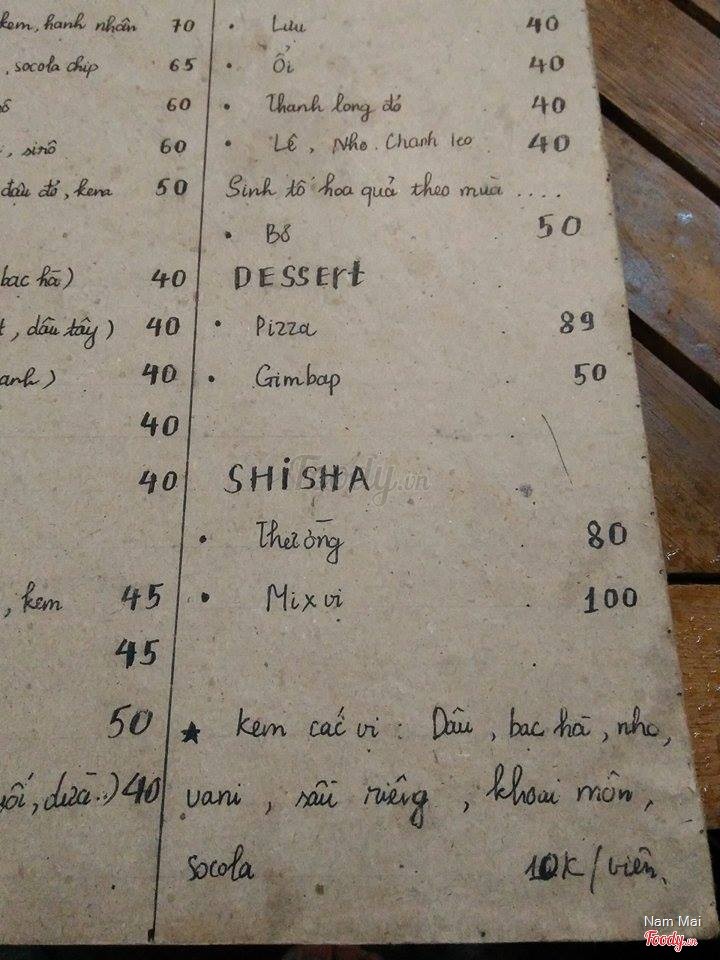 kem, hanh nhân 70
, socola chip 65
60
, sirô 60
đậu đỏ, kem 50
bạc hà) 40
, dâu tây) 40
anh) 40
40
40
, kem 45
45
50
, dừa..) 40
• Lựu 40
• Ổi 40
• Thanh long đỏ 40
• Lê, Nho. Chanh leo 40
Sinh tố hoa quả theo mùa ....
• Bơ 50
DESSERt
• Pizza 89
• Gimbap 50
SHiSHA
• Thường 80
• Mix vị 100
★ kem các vị : Dâu, bạc hà, nho,
vani, sầu riêng, khoai môn,
socola 10K/viên.
Foody.vn
Nam Mai
Foody.vn